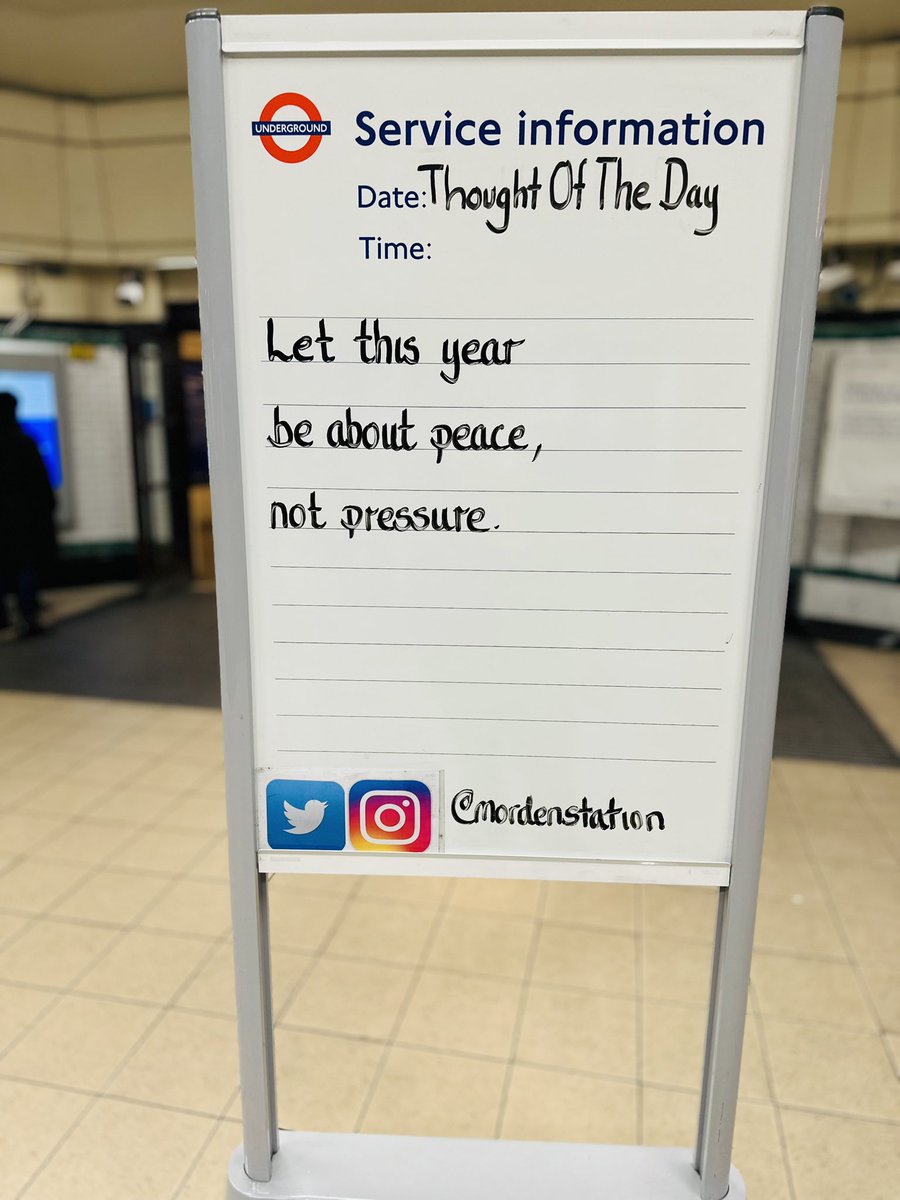 UNDERGROUND
Service information
Date: Thought Of The Day
Time:
Let this year
be about peace,
not pressure.
@mordenstation